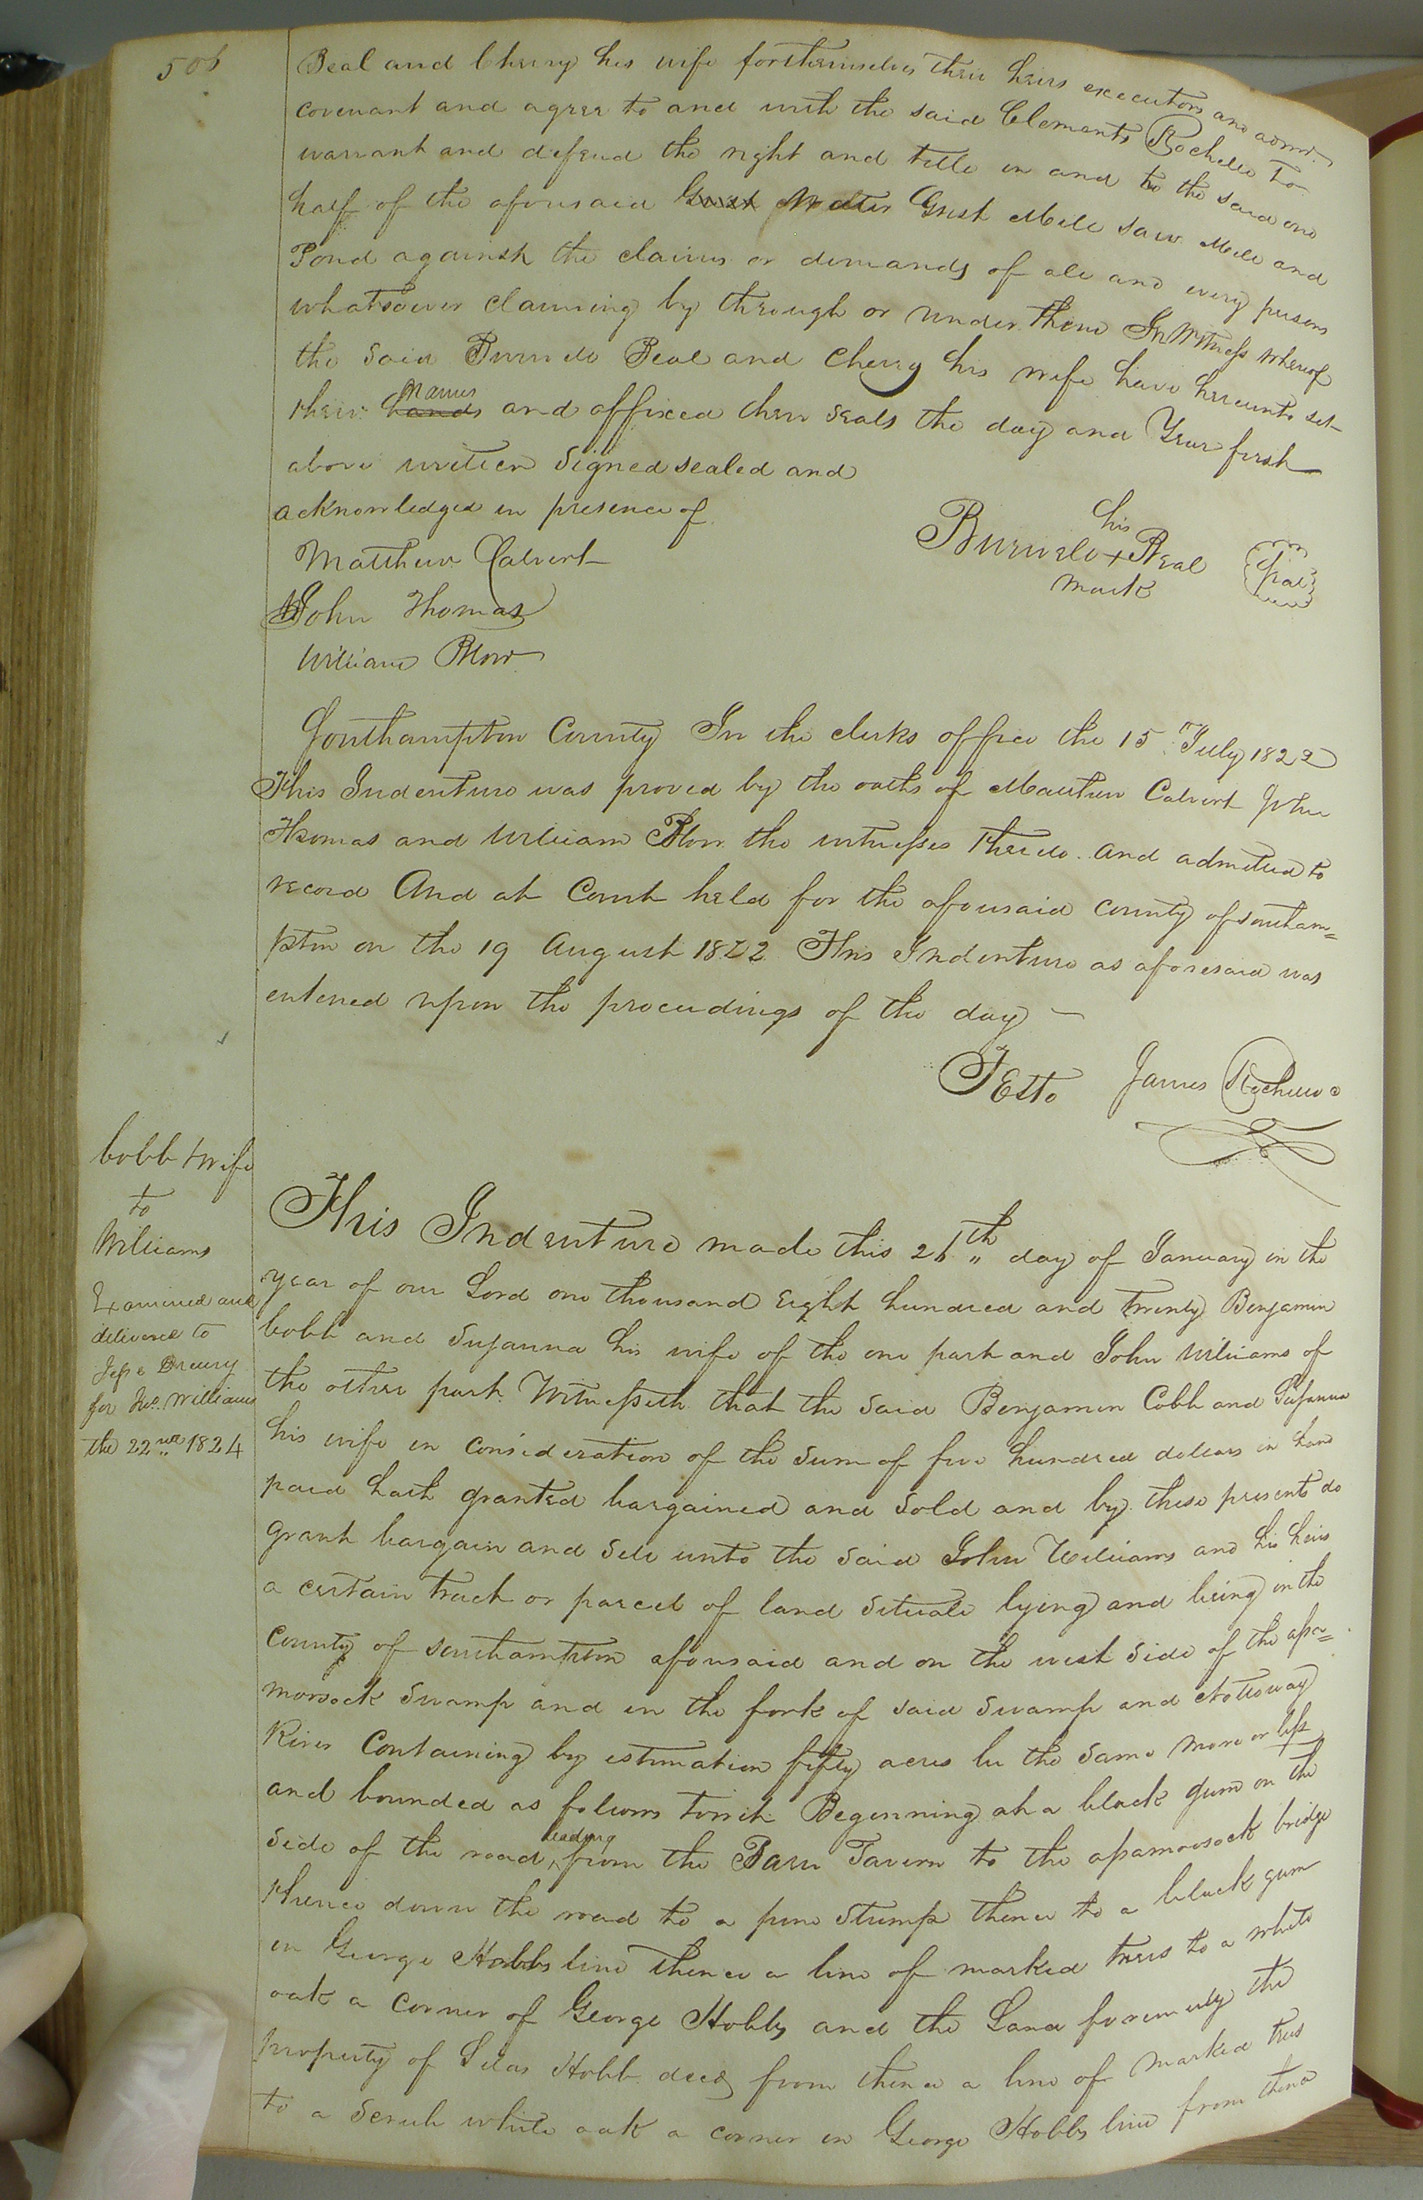 506
Beal and Cherry his wife for themselves their heirs executors and admrs.
covenant and agree to and with the said Clements Rochelle to
warrant and defend the right and title in and to the said one
half of the aforesaid Grist Water Grist Mill saw Mill and
Pond against the claims or demands of all and every persons
whatsoever claiming by through or under them In Witness whereof
the said Burwell Beal and Cherry his wife have hereunto set
their hands Names and affixed their seals the day and Year first
above written Signed sealed and
acknowledged in presence of
Matthew Calvert
John Thomas
William Blow
his
Burwell + Beal Seal
mark
Southampton County In the clerks office the 15 July 1822
This Indenture was proved by the oaths of Matthew Calvert John
Thomas and William Blow the witnesses thereto and admitted to
record And at Court held for the aforesaid county of southam=
pton on the 19 August 1822 This Indenture as aforesaid was
entered upon the proceedings of the day —
Teste James Rochelle
Cobb & wife
to
Williams
Examined and
delivered to
Jesse Drewry
for Jno. Williams
the 22nd 1824
This Indenture made this 26th day of January in the
year of our Lord one thousand Eight hundred and twenty Benjamin
Cobb and Susanna his wife of the one part and John Williams of
the other part Witnesseth that the said Benjamin Cobb and Susanna
his wife in consideration of the sum of five hundred dollars in hand
paid hath granted bargained and sold and by these presents do
grant bargain and sell unto the said John Williams and his heirs
a certain track or parcel of land situate lying and being in the
County of southampton aforesaid and on the west side of the apa=
moosock swamp and in the fork of said swamp and Nottoway
River Containing by estimation fifty acres be the same more or less
and bounded as follows towit Beginning at a black gum on the
side of the road leading from the Barn Tavern to the apamoosock bridge
thence down the road to a pine stump thence to a black gum
in George Hobbs line thence a line of marked trees to a white
oak a corner of George Hobbs and the Land formerly the
property of Silas Hobb decd from thence a line of marked trees
to a scrub white oak a corner in George Hobbs line from thence